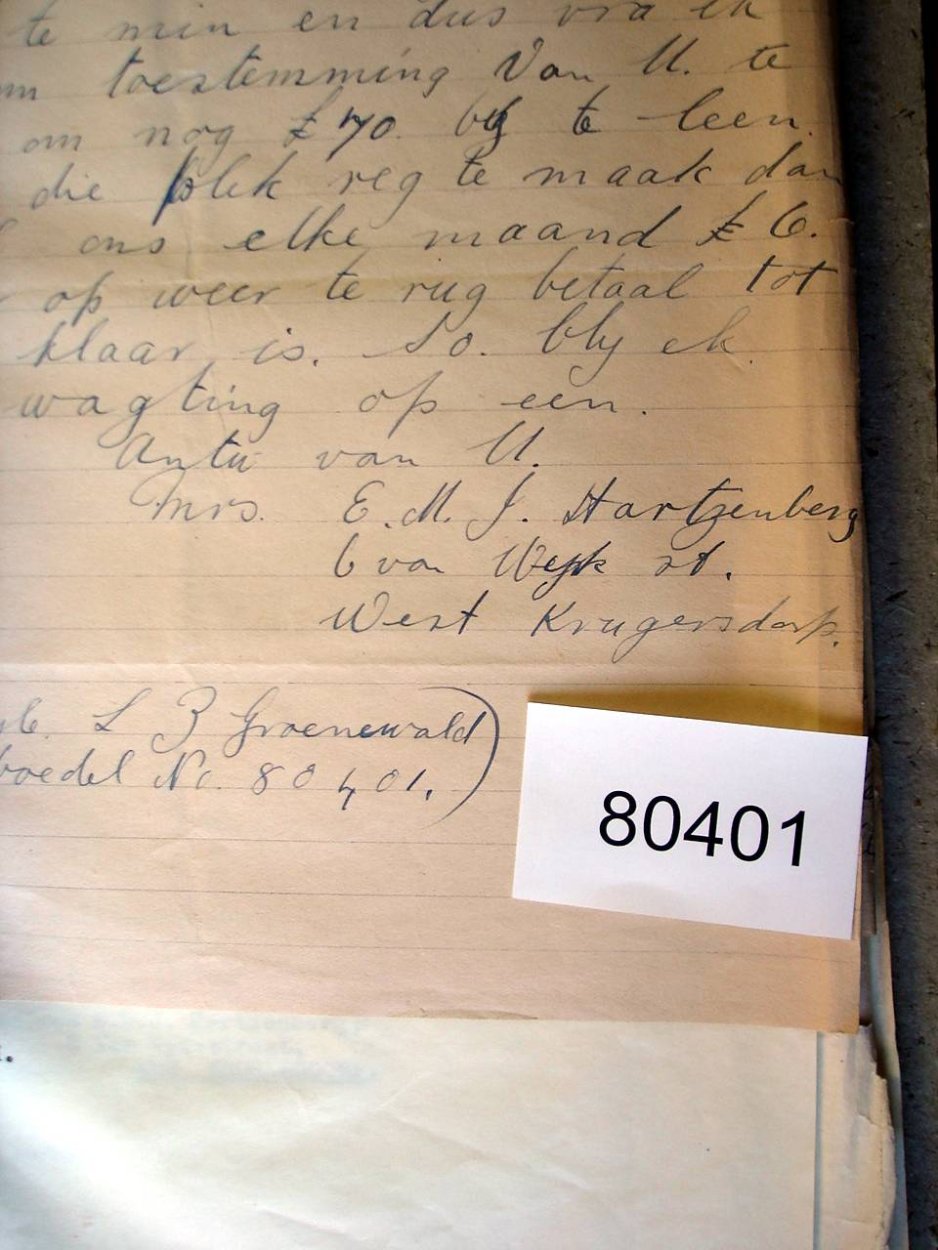 te min en dus vra ek
om toestemming Van U. te
om nog £70. by te leen.
die plek reg te maak dan
ons elke maand £6.
op weer te rug betaal tot
klaar is. So. bly ek.
wagting op een.
Antw van U.
Mrs. E. M. J. Hartzenberg
6 van Wyk st.
West Krugersdorp.
L B Groenewald)
boedel No. 80401.
80401